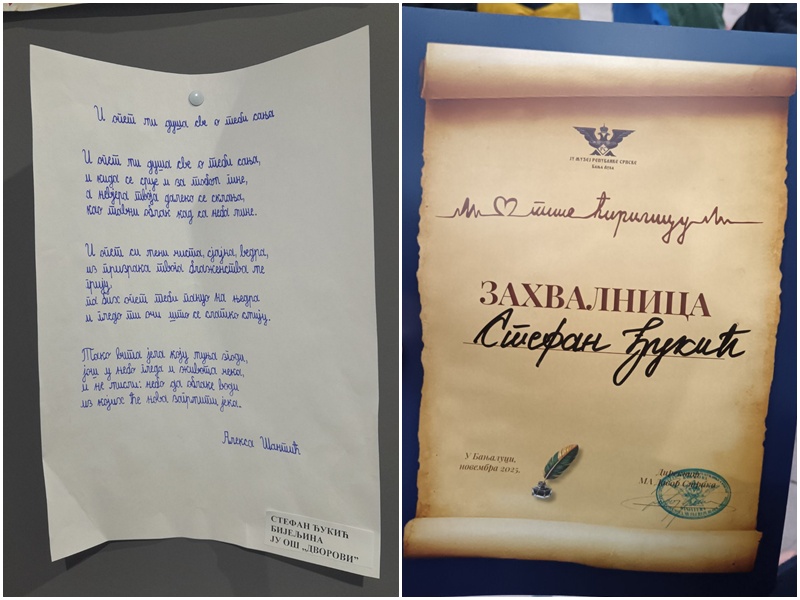 И опет ми душа све о теби сања
И опет ми душа све о теби сања,
и кида се срце и за тобом гине,
а невјера твоја далеко се склања,
као тавни облак кад са неба мине.
И опет си мени чиста, сјајна, ведра,
из призрака твога блаженства ме
грију,
па бих опет теби пануо на њедра
и гледо ти очи што се слатко смију.
Тако вита јела коју муња згоди,
још у небо гледа и живота чека,
и не мисли: небо да облаке води
из којих ће нова загрмити јека.
Алекса Шантић
СТЕФАН ЂУКИЋ
БИЈЕЉИНА
ЈУ ОШ „ДВОРОВИ”
ЈУ МУЗЕЈ РЕПУБЛИКЕ СРПСКЕ
БАЊА ЛУКА
пише ћирилицу
ЗАХВАЛНИЦА
Стефан Ђукић
У Бањалуци,
новембра 2025.
Директор
МА